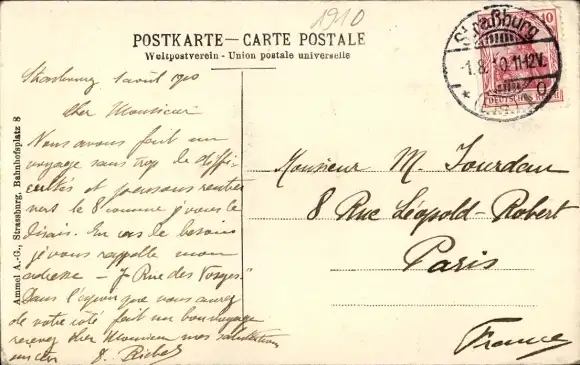 1910
POSTKARTE – CARTE POSTALE
Weltpostverein - Union postale universelle
Straßburg
1.8.10.11-12V.
10
DEUTSCHES REICH
Ammel A.-G., Strassburg, Bahnhofsplatz 8
Strasbourg 1 août 1910
Cher Monsieur
Nous avons fait un
voyage sans trop de diffi
cultés et pensons rentrer
vers le 8 comme je vous le
disais. En cas de besoin
je vous rappelle mon
adresse – 7 Rue des Vosges.
Dans l'espoir que vous aurez
de votre côté fait un bon voyage
recevez cher Monsieur mes salutations
Monsieur M. Jourdan
8 Rue Léopold-Robert
Paris
France